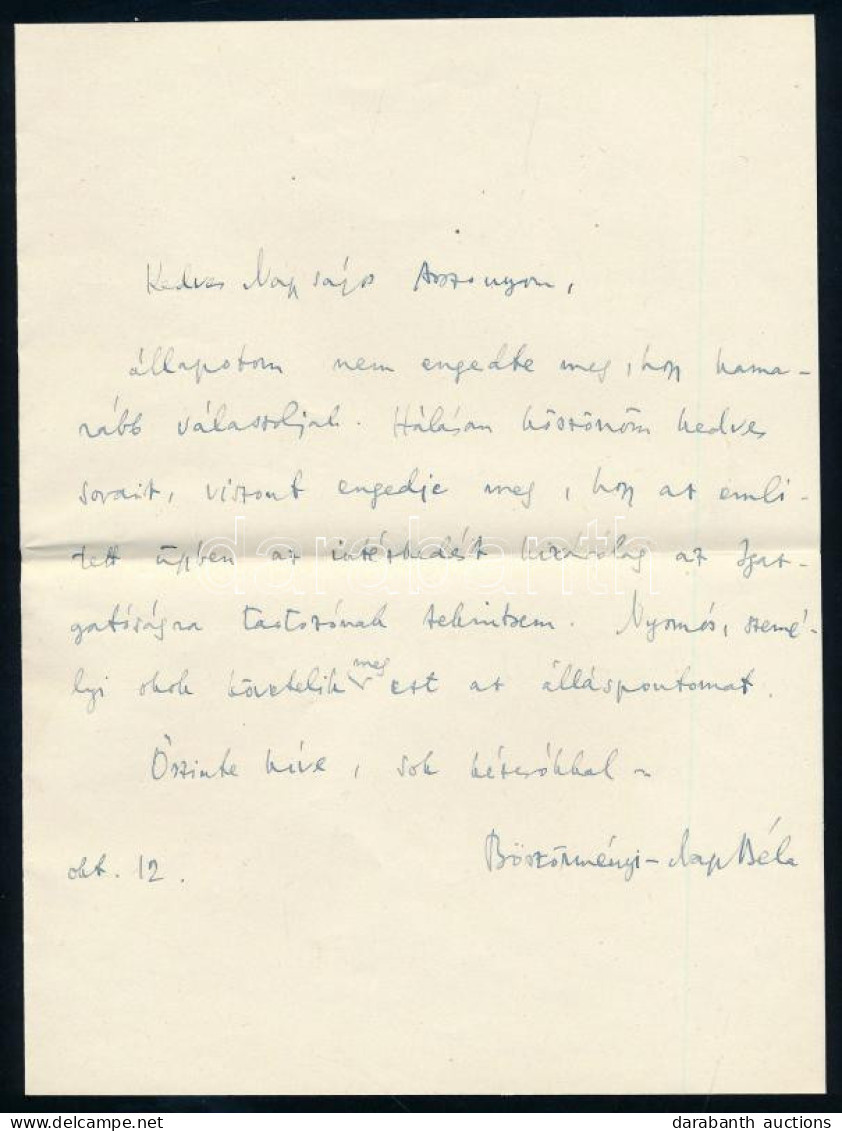 Kedves Nagyságos Asszonyom,
állapotom nem engedte meg, hogy hama-
rább válaszoljak. Hálásan köszönöm kedves
sorait, viszont engedje meg, hogy az emlí-
tett ügyben az intézkedést kizárólag az Igaz-
gatóságra tartozónak tekintsem. Nyomós, szemé-
lyi okok követelik meg ezt az álláspontomat.
Őszinte híve, sok kézcsókkal –
Böszörményi-Nagy Béla
okt. 12.
darabanth
darabanth auctions